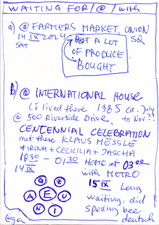 WAITING FOR / @ / with
a) @ FARMERS MARKET, UNION SQ
14 IX 2024
SAT
BUT A LOT OF PRODUCE BOUGHT
b) @ INTERNATIONAL HOUSE
(i lived there 1985 ca. July
@ 500 Riverside Drive, to Nov?)
CENTENNIAL CELEBRATION
met there KLAUS MÖSSLE
+ IRINA + CECILIA + JASCHA
1830 — 0130 HOME at 0300
14 IX with METRO
15 IX Long
waiting, did
spelling bee
deutsch